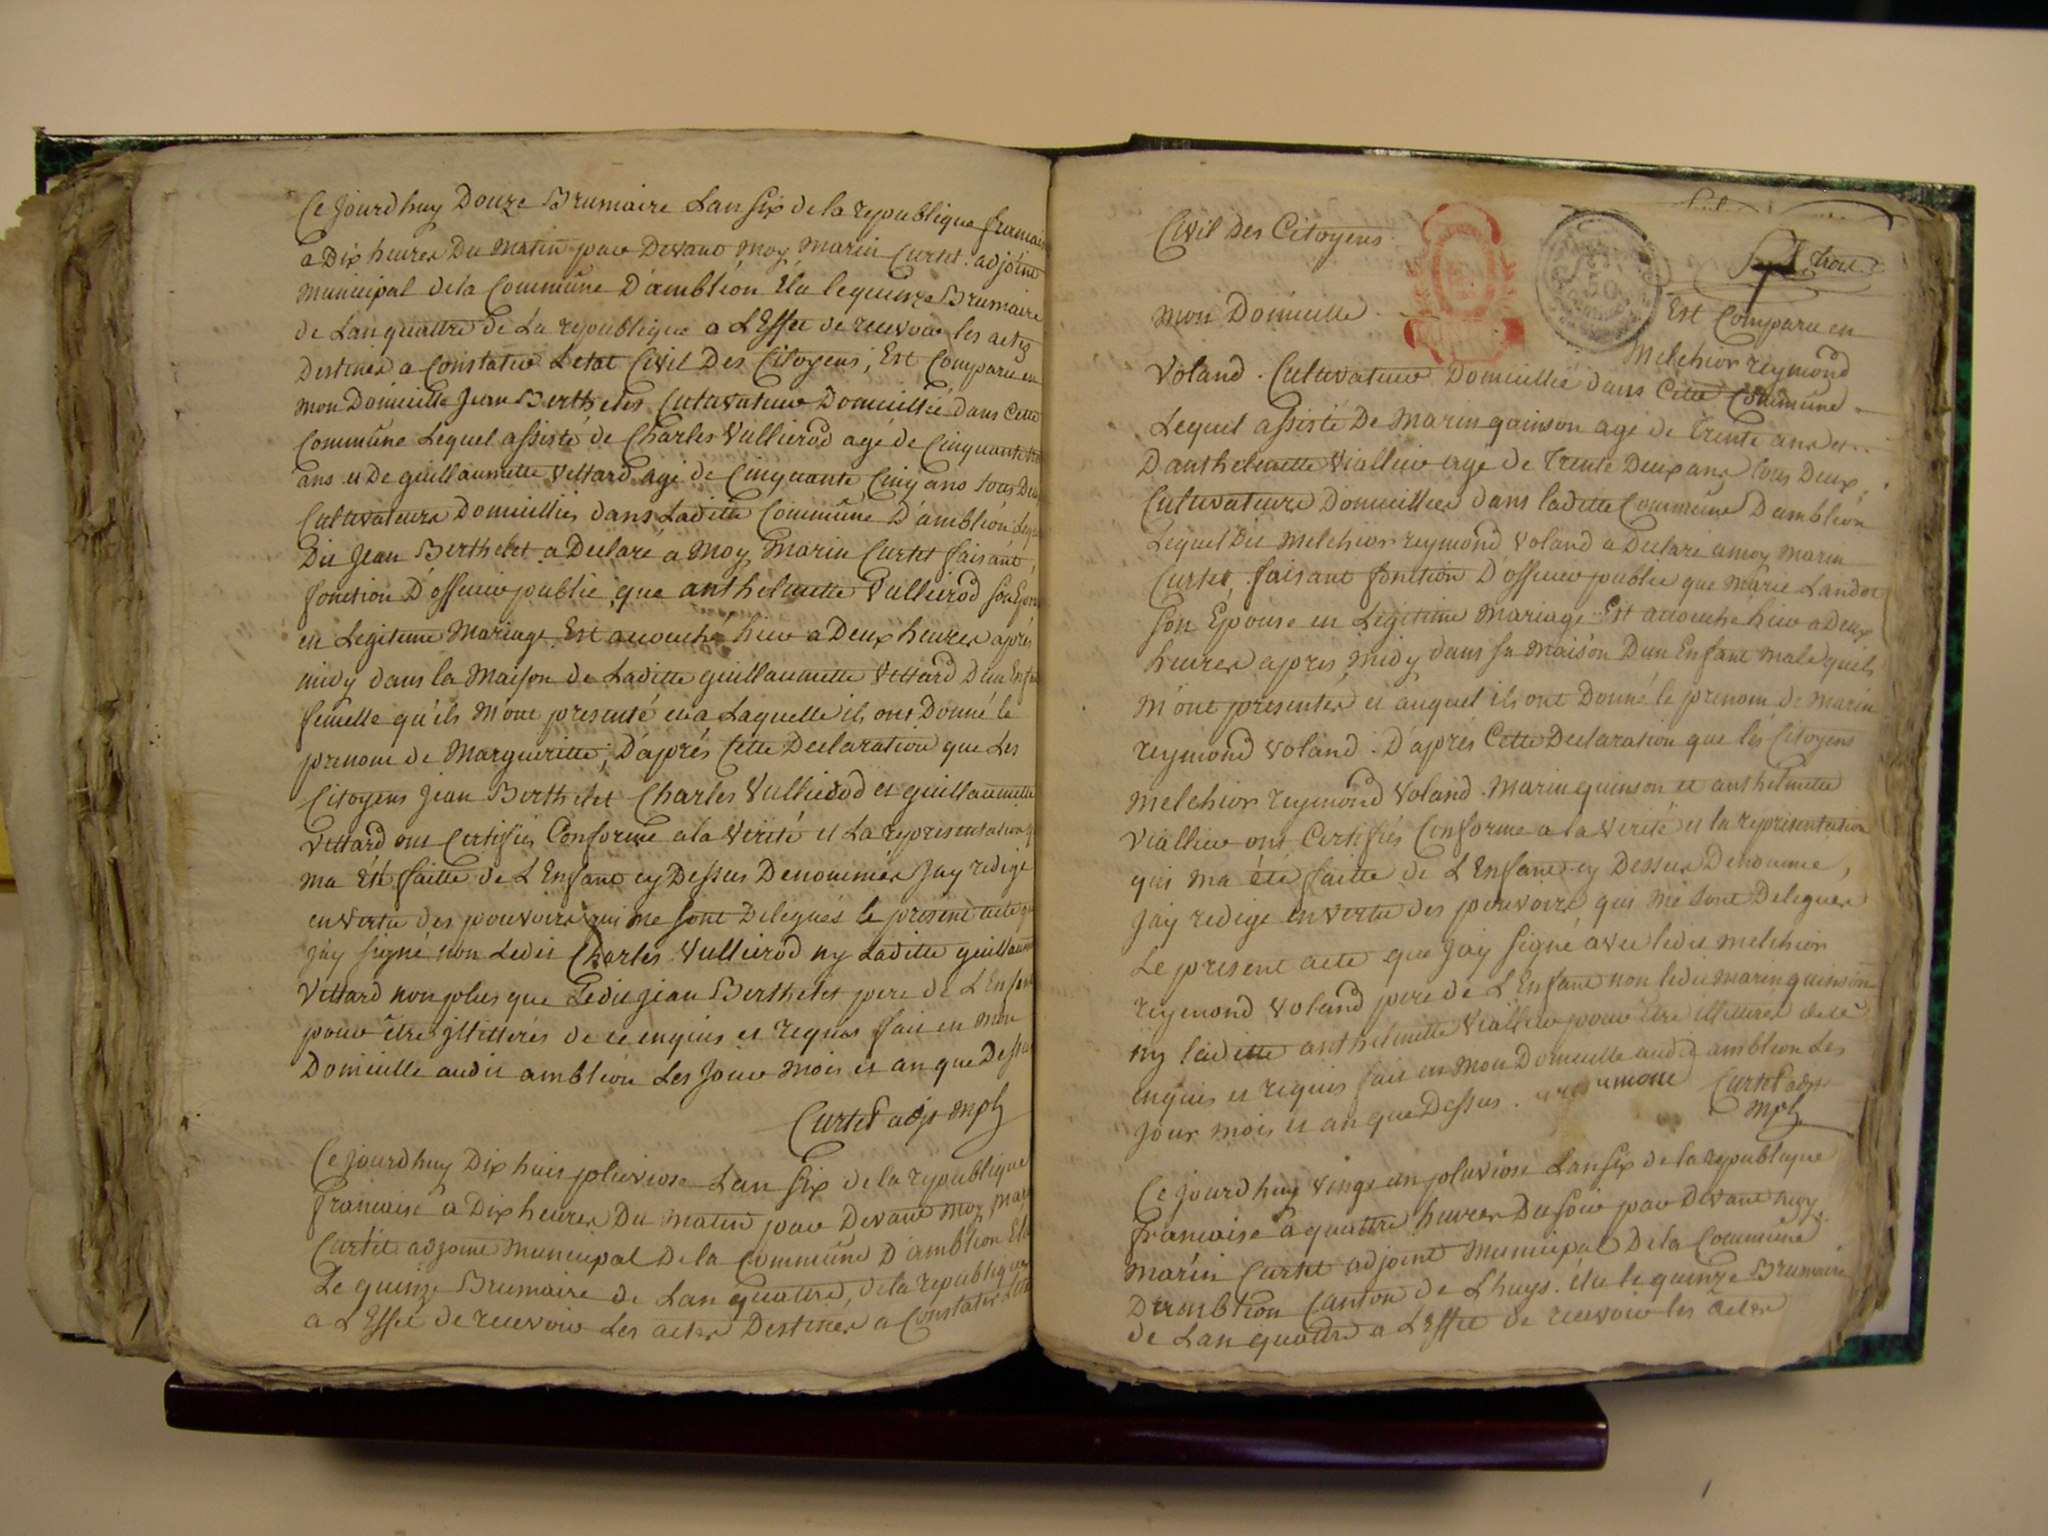 Ce jourd huy Douze Brumaire Lan six de la republique francais
a Dix heures Du Matin par Devant Moy Marin Curtet adjoint
Municipal de la Commune D'ambléon Elu le quinze Brumaire
de Lan quattre de La republique a L'Effet de recevoir les actes
Destinés a Constater Létat Civil Des Citoyens, Est Comparu en
mon Domicille Jean Berthelet Cultivateur Domicillié dans Cette
Commune Lequel assisté de Charles Vullierod agé de Cinquante
ans et De guillaumette Vettard agé de Cinquante Cinq ans tous Deux
Cultivateurs Domicilliés dans Laditte Commune D'ambléon Leq
Dit Jean Berthelet a Declaré a Moy Marin Curtet faisant
fonction D'officier public que anthelmette Vullierod son Epou
en Legitime Mariage Est accouché hier a Deux heures après
midy dans la Maison de Laditte guillaumette Vettard D'un Enfa
femelle qu'ils M'ont presenté et a Laquelle ils ont Donné le
prenom de Margueritte, D'aprés Cette Declaration que Les
Citoyens Jean Berthelet Charles Vullierod et guillaumette
Vettard ont Certifiés Conforme a la Verité et La representation q
ma été faitte de L'Enfant cy Dessus Denommér Jay redigé
en Vertu des pouvoirs qui me sont Delegués le present acte que
J'ay signé non Ledit Charles Vullierod ny Laditte guillaume
Vettard non plus que Ledit Jean Berthelet pere de L'Enfant
pour être illitterés de ce enquis et requis fait en Mon
Domicille audit ambléon Les Jour Mois et an que Dessus
Curtet adjt mpl
Ce jourd huy Dix huit pluviose Lan six de la république
francaise a Dix heures Du Matin par Devant Moy Mar
Curtet adjoint Municipal De la Commune D'ambléon Elu
Le quinze Brumaire de Lan quattre, de la republique
a L'Effet de recevoir Les actes Destinés a Constater L'état
Civil Des Citoyens
Est Comparu en
mon Domicille
Melchior reymond
Voland Cultivateur Domicillié dans Cette Commune
Lequel assisté De Marin quinson agé de Trente ans et
D'anthelmette Viallier agé de Trente Deux ans tous Deux
Cultivateurs Domicilliés dans laditte Commune D'ambléon
Lequel Dit Melchior reymond Voland a Declaré a moy Marin
Curtet, faisant fonction D'officier public que Marie Landoz
son Epouse en Legitime Mariage Est accouché hier a Deux
heures après Midy dans sa Maison D'un Enfant Male qu'ils
M'ont presentés et auquel ils ont Donné le prenom de Marin
reymond Voland. D'aprés Cette Declaration que les Citoyens
Melchior reymond Voland. Marin quinson et anthelmette
Viallier ont Certifiés Conforme a la Verité et la representation
qui ma été faitte de L'Enfant cy Dessus Denommé,
J'ay redigé en Vertu des pouvoirs qui me sont Delegués
Le present acte que J'ay signé avec ledit Melchior
reymond Voland pere de L'Enfant non ledit Marin quinson
ny laditte anthelmette Viallier pour être illitterés de ce
enquis et requis fait en Mon Domicille audit ambléon Les
Jour Mois et an que Dessus. Curtet adjt
mpl
Ce jourd huy Vingt un pluviose Lan six de la republique
francaise a quattre heures Du soir par Devant moy
Marin Curtet adjoint Municipal De la Commune
D'ambléon Canton de Lhuys. élu le quinze Brumaire
de Lan quattre a L'Effet de recevoir les actes